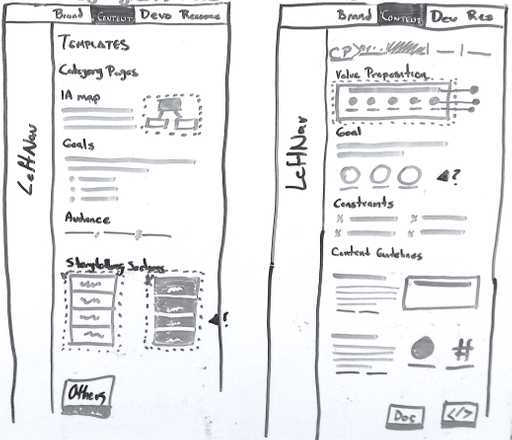 Brand Content Devs Resource
TEMPLATES
Category Pages
IA map
Goals
Audience
Storytelling Sections
?
Others
Left Nav
Brand Content Dev Res
CP
Value Proposition
Goal
?
Constraints
% %
% %
Content Guidelines
#
Doc </>
Left Nav